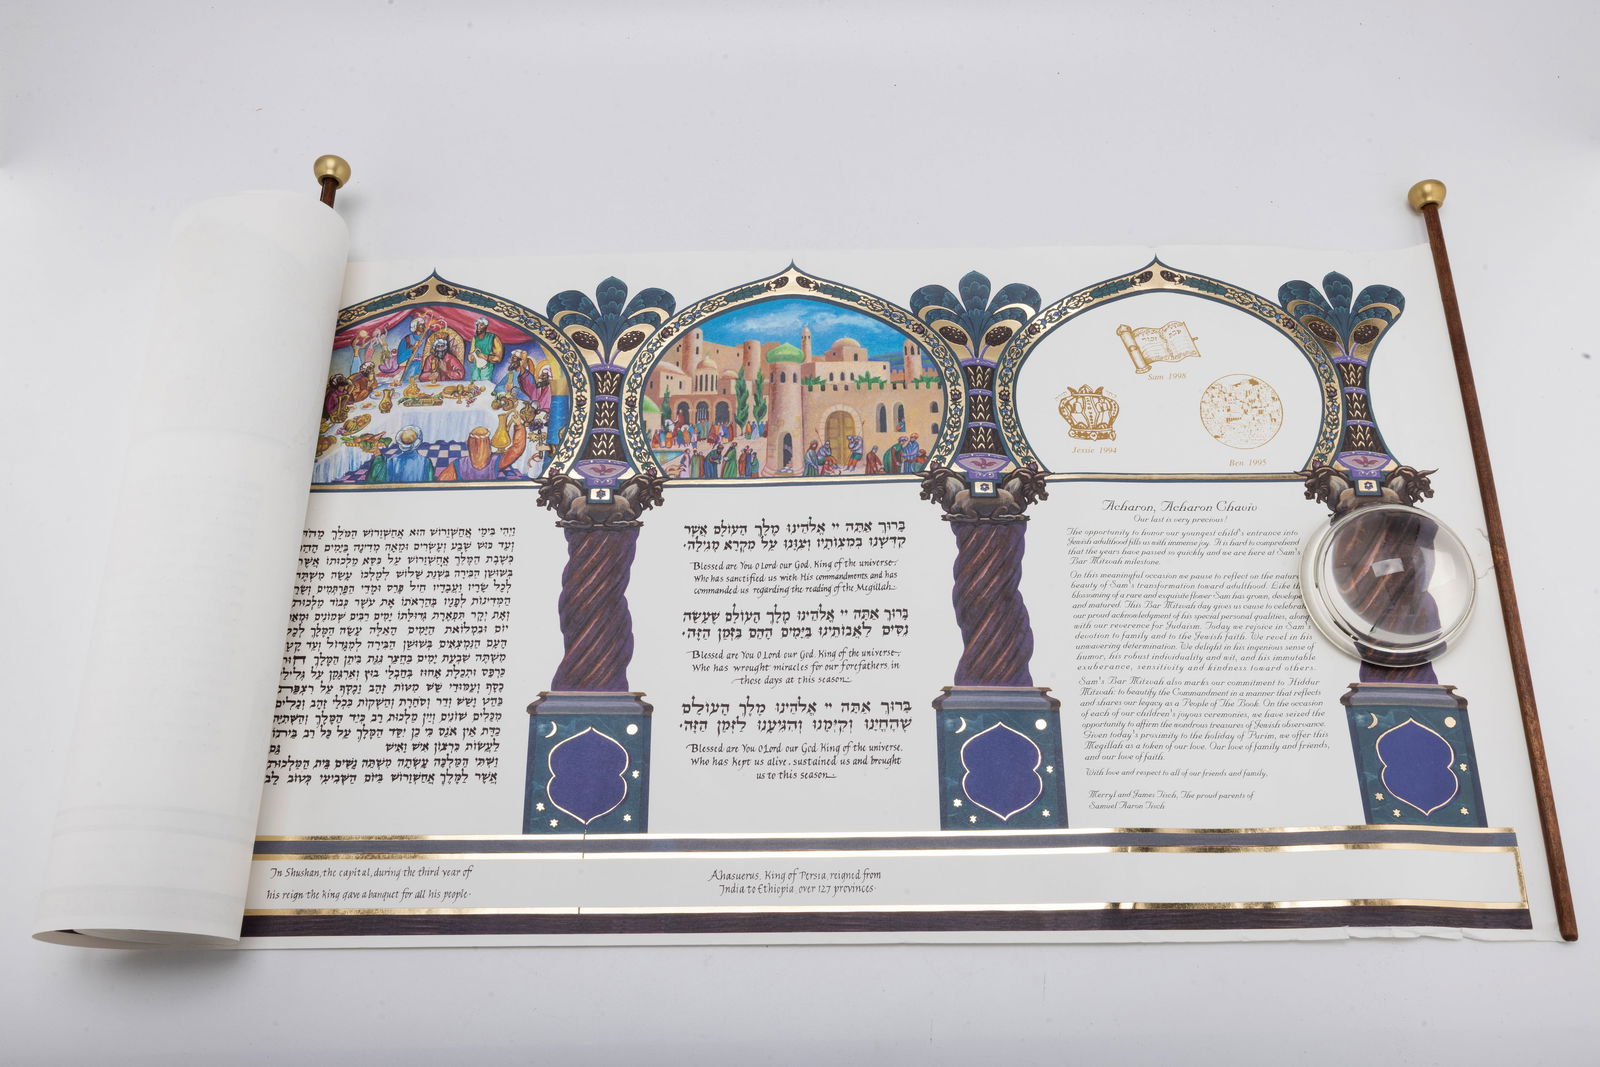 Sam 1998
Jessie 1994
Ben 1995
Acharon, Acharon Chaviv
Our last is very precious!
The opportunity to honor our youngest child's entrance into
Jewish adulthood fills us with immense joy. It is hard to comprehend
that the years have passed so quickly and we are here at Sam's
Bar Mitzvah milestone.
On this meaningful occasion we pause to reflect on the nature
beauty of Sam's transformation toward adulthood. Like th
blossoming of a rare and exquisite flower Sam has grown, develope
and matured. This Bar Mitzvah day gives us cause to celebrat
our proud acknowledgment of his special personal qualities, along
with our reverence for Judaism. Today we rejoice in Sam's
devotion to family and to the Jewish faith. We revel in his
unwavering determination. We delight in his ingenious sense of
humor, his robust individuality and wit, and his immutable
exuberance, sensitivity and kindness toward others.
Sam's Bar Mitzvah also marks our commitment to Hiddur
Mitzvah: to beautify the Commandment in a manner that reflects
and shares our legacy as a People of The Book. On the occasion
of each of our children's joyous ceremonies, we have seized the
opportunity to affirm the wondrous treasures of Jewish observance.
Given today's proximity to the holiday of Purim, we offer this
Megillah as a token of our love. Our love of family and friends,
and our love of faith.
With love and respect to all of our friends and family,
Merryl and James Tisch, The proud parents of
Samuel Aaron Tisch
ברוך אתה יי אלהינו מלך העולם אשר
קדשנו במצותיו וצונו על מקרא מגילה.
Blessed are You O Lord our God, King of the universe.
Who has sanctified us with His commandments and has
commanded us regarding the reading of the Megillah.
ברוך אתה יי אלהינו מלך העולם שעשה
נסים לאבותינו בימים ההם בזמן הזה.
Blessed are You O Lord our God, King of the universe.
Who has wrought miracles for our forefathers in
these days at this season.
ברוך אתה יי אלהינו מלך העולם
שהחינו וקימנו והגיענו לזמן הזה.
Blessed are You O Lord our God King of the universe.
Who has kept us alive, sustained us and brought
us to this season.
ויהי בימי אחשורוש הוא אחשורוש המלך מהדו
ועד כוש שבע ועשרים ומאה מדינה בימים ההם
כשבת המלך אחשורוש על כסא מלכותו אשר
בשושן הבירה בשנת שלוש למלכו עשה משתה
לכל שריו ועבדיו חיל פרס ומדי הפרתמים ושרי
המדינות לפניו בהראתו את עשר כבוד מלכותו
ואת יקר תפארת גדולתו ימים רבים שמונים ומאת
יום ובמלואת הימים האלה עשה המלך לכל
העם הנמצאים בשושן הבירה למגדול ועד קטן
משתה שבעת ימים בחצר גנת ביתן המלך חור
כרפס ותכלת אחוז בחבלי בוץ וארגמן על גלילי
כסף ועמודי שש מטות זהב וכסף על רצפת
בהט ושש ודר וסחרת והשקות בכלי זהב וכלים
מכלים שונים ויין מלכות רב כיד המלך והשתיה
כדת אין אנס כי כן יסד המלך על כל רב ביתו
לעשות כרצון איש ואיש גם
ושתי המלכה עשתה משתה נשים בית המלכות
אשר למלך אחשורוש ביום השביעי כטוב לב
Ahasuerus, King of Persia, reigned from
India to Ethiopia, over 127 provinces.
In Shushan, the capital, during the third year of
his reign the king gave a banquet for all his people.